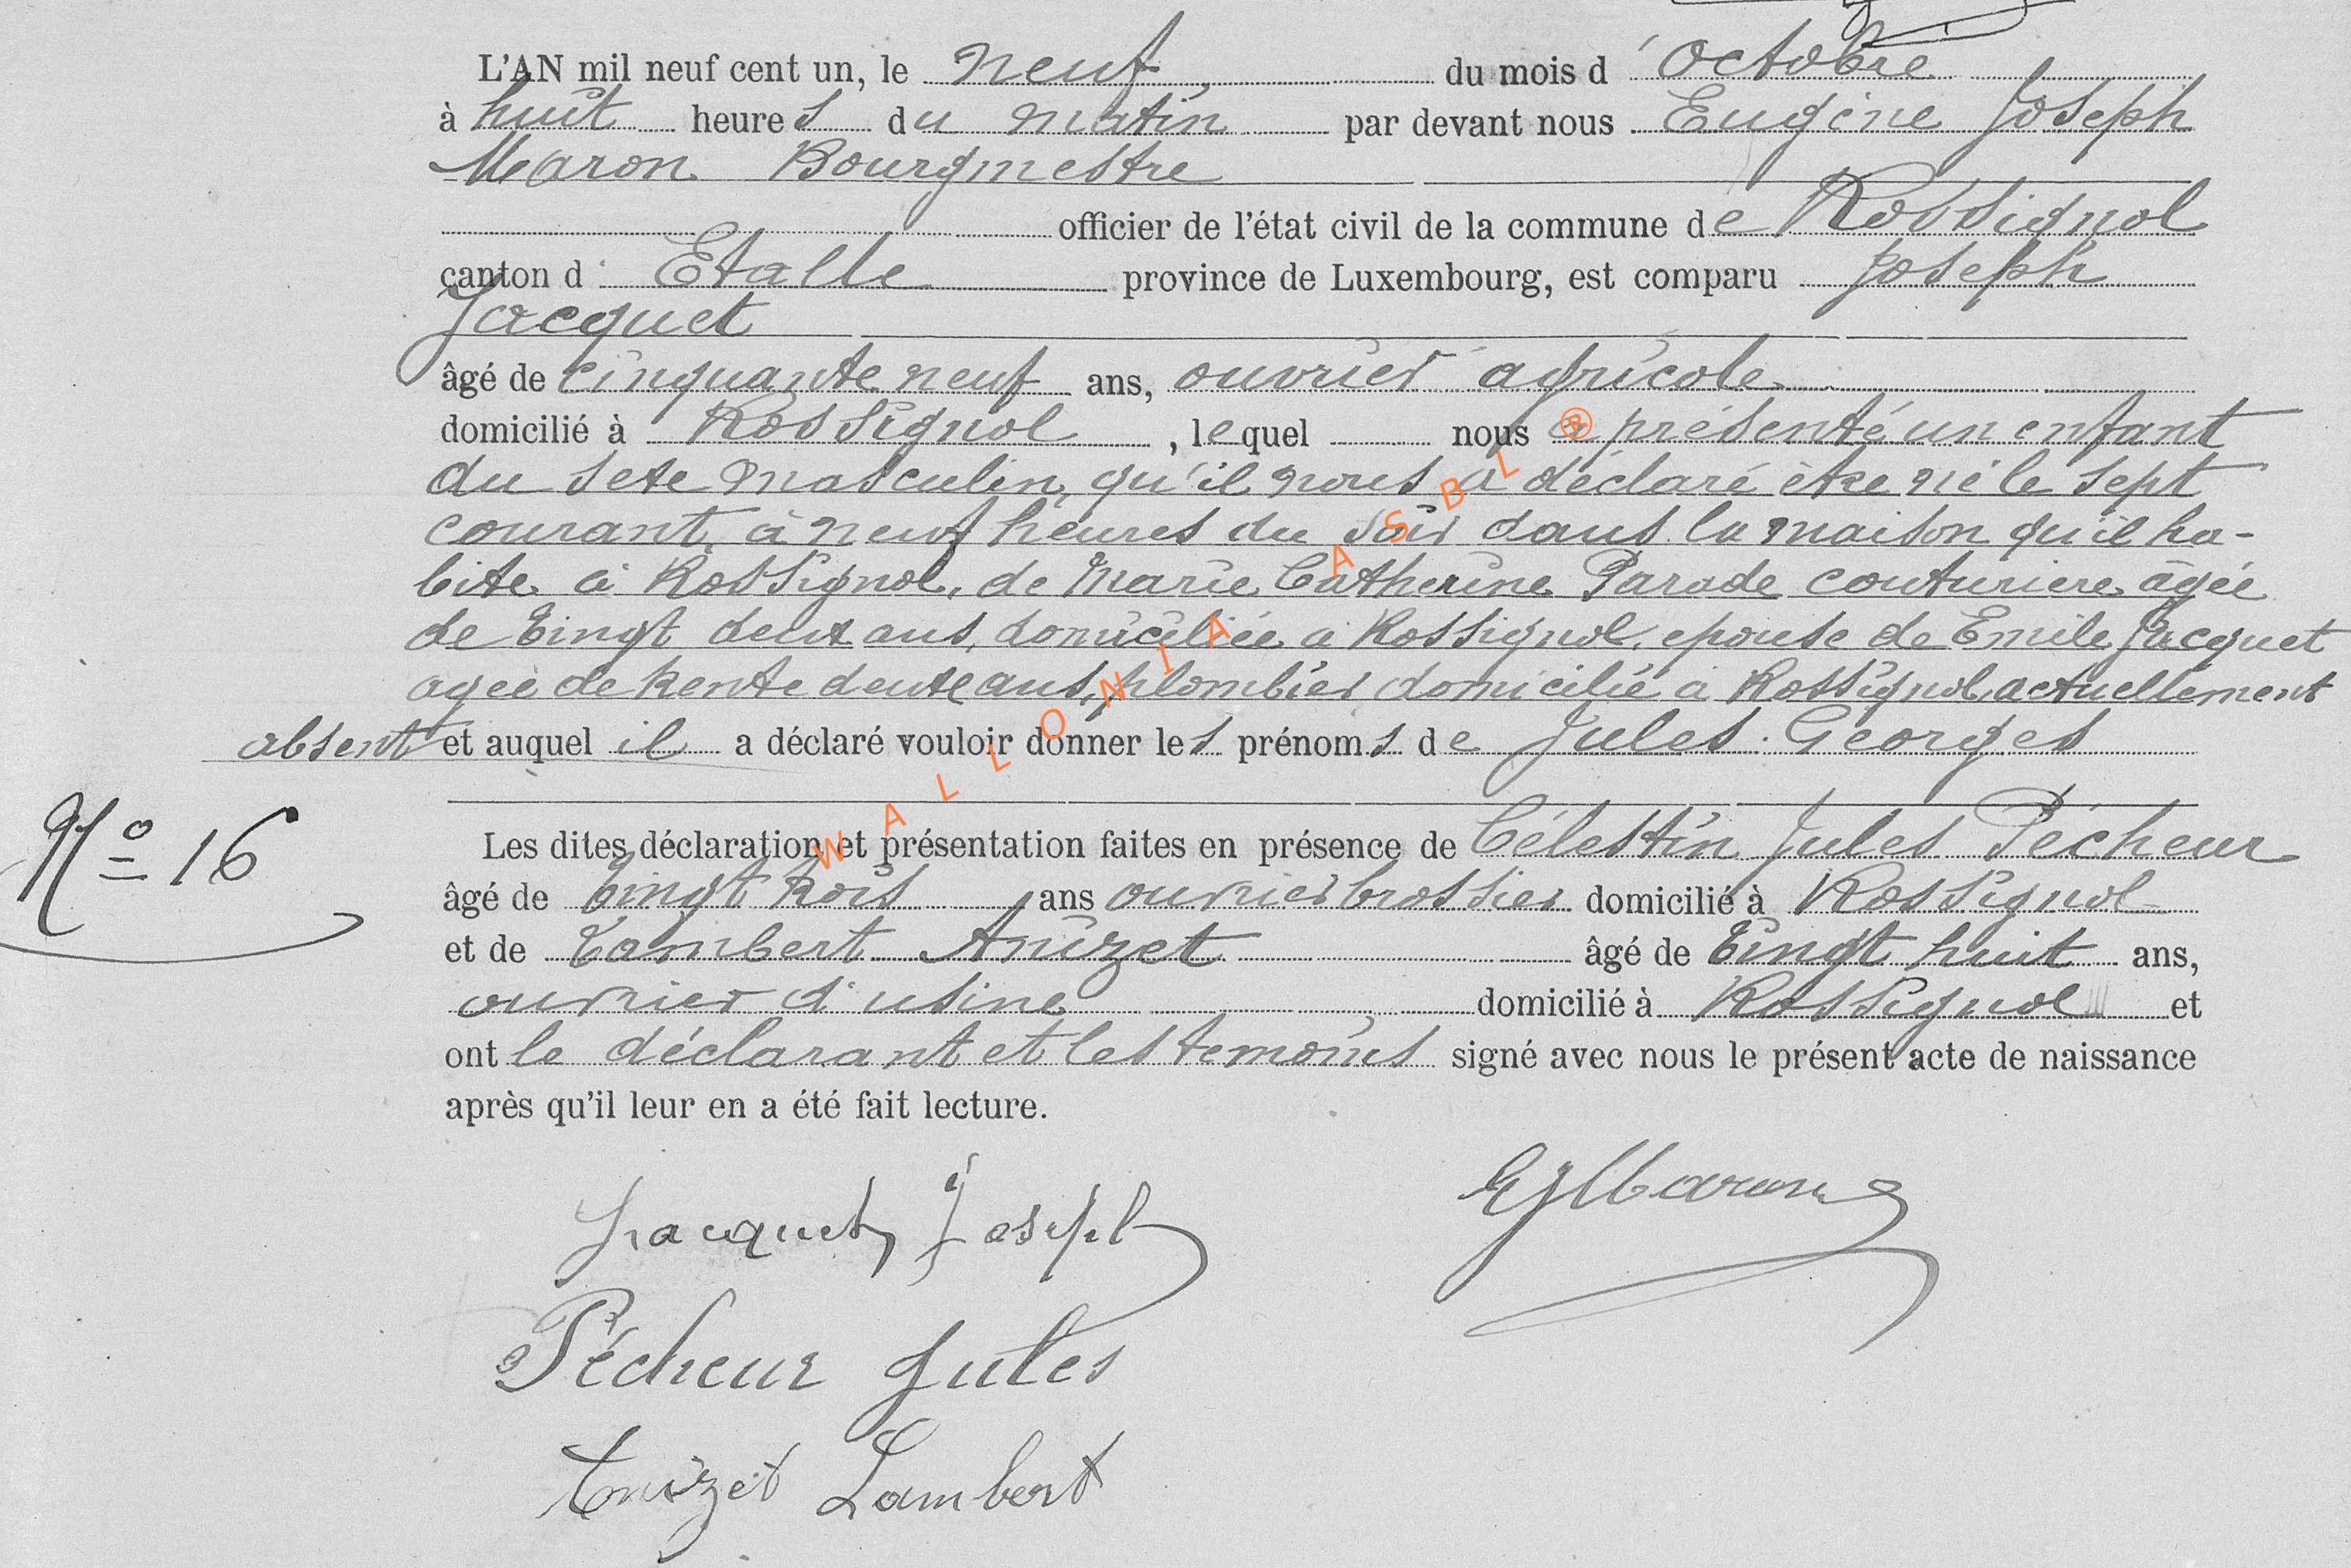 L'AN mil neuf cent un, le neuf du mois d'octobre
à huit heures du matin par devant nous Eugène Joseph
Maron Bourgmestre
officier de l'état civil de la commune de Rossignol
canton d'Etalle province de Luxembourg, est comparu Joseph
Jacquet
âgé de cinquante neuf ans, ouvrier agricole
domicilié à Rossignol, lequel nous a présenté un enfant
du sexe masculin, qu'il nous a déclaré être né le sept
courant, à neuf heures du soir dans la maison qu'il ha-
bite à Rossignol, de Marie Catherine Parade couturiere âgée
de vingt deux ans, domiciliée à Rossignol, epouse de Emile Jacquet
agée de trente deux ans, plombier domicilié à Rossignol actuellement
absent et auquel il a déclaré vouloir donner les prénoms de Jules Georges
Nº 16
Les dites déclaration et présentation faites en présence de Célestin Jules Pécheur
âgé de vingt trois ans ouvrier brossier domicilié à Rossignol
et de Lambert Anizet âgé de vingt huit ans,
ouvrier d'usine domicilié à Rossignol et
ont le déclarant et les temoins signé avec nous le présent acte de naissance
après qu'il leur en a été fait lecture.
Jacquet Joseph
EJMaron
Pécheur Jules
Anizet Lambert
WALLONIA ASBL ®